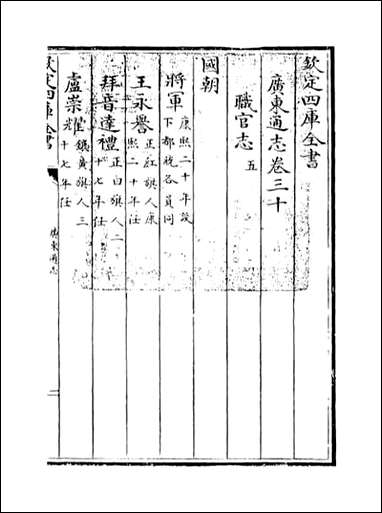 欽定四庫全書
廣東通志卷三十
職官志五
國朝
將軍康熙二十年設下都統各員同
王永譽正紅旗人康熙二十年任
拜音達禮正白旗人二十七年任
盧崇耀鑲黃旗人三十七年任
欽定四庫全書
廣東通志